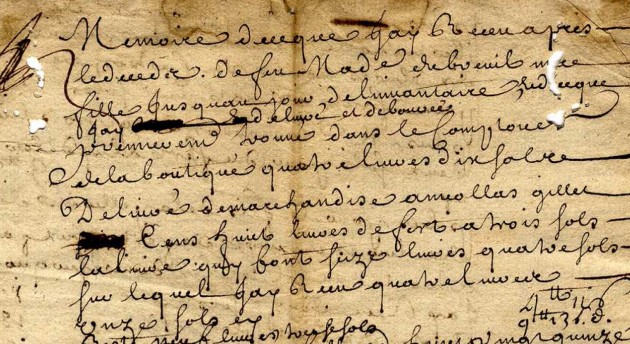 Memoire deceque Jay Receu apres
ledecedz. defeu Made dubreuil ma
fille Jusquau jour delinuantaire, &deceque
Jay deliuré et debourcé
premierement trouué dans le Comptouer
dela boutique quatre liures dix sols
Deliuré demarchandise anicollas gillet
Cens huict liures defert atrois sols
laliure quy font seize liures quatre sols
sur lequel Jay Receu quatre liures
onze sols cy
4 ᵗᵗ 11 ˢ
liures treize sols